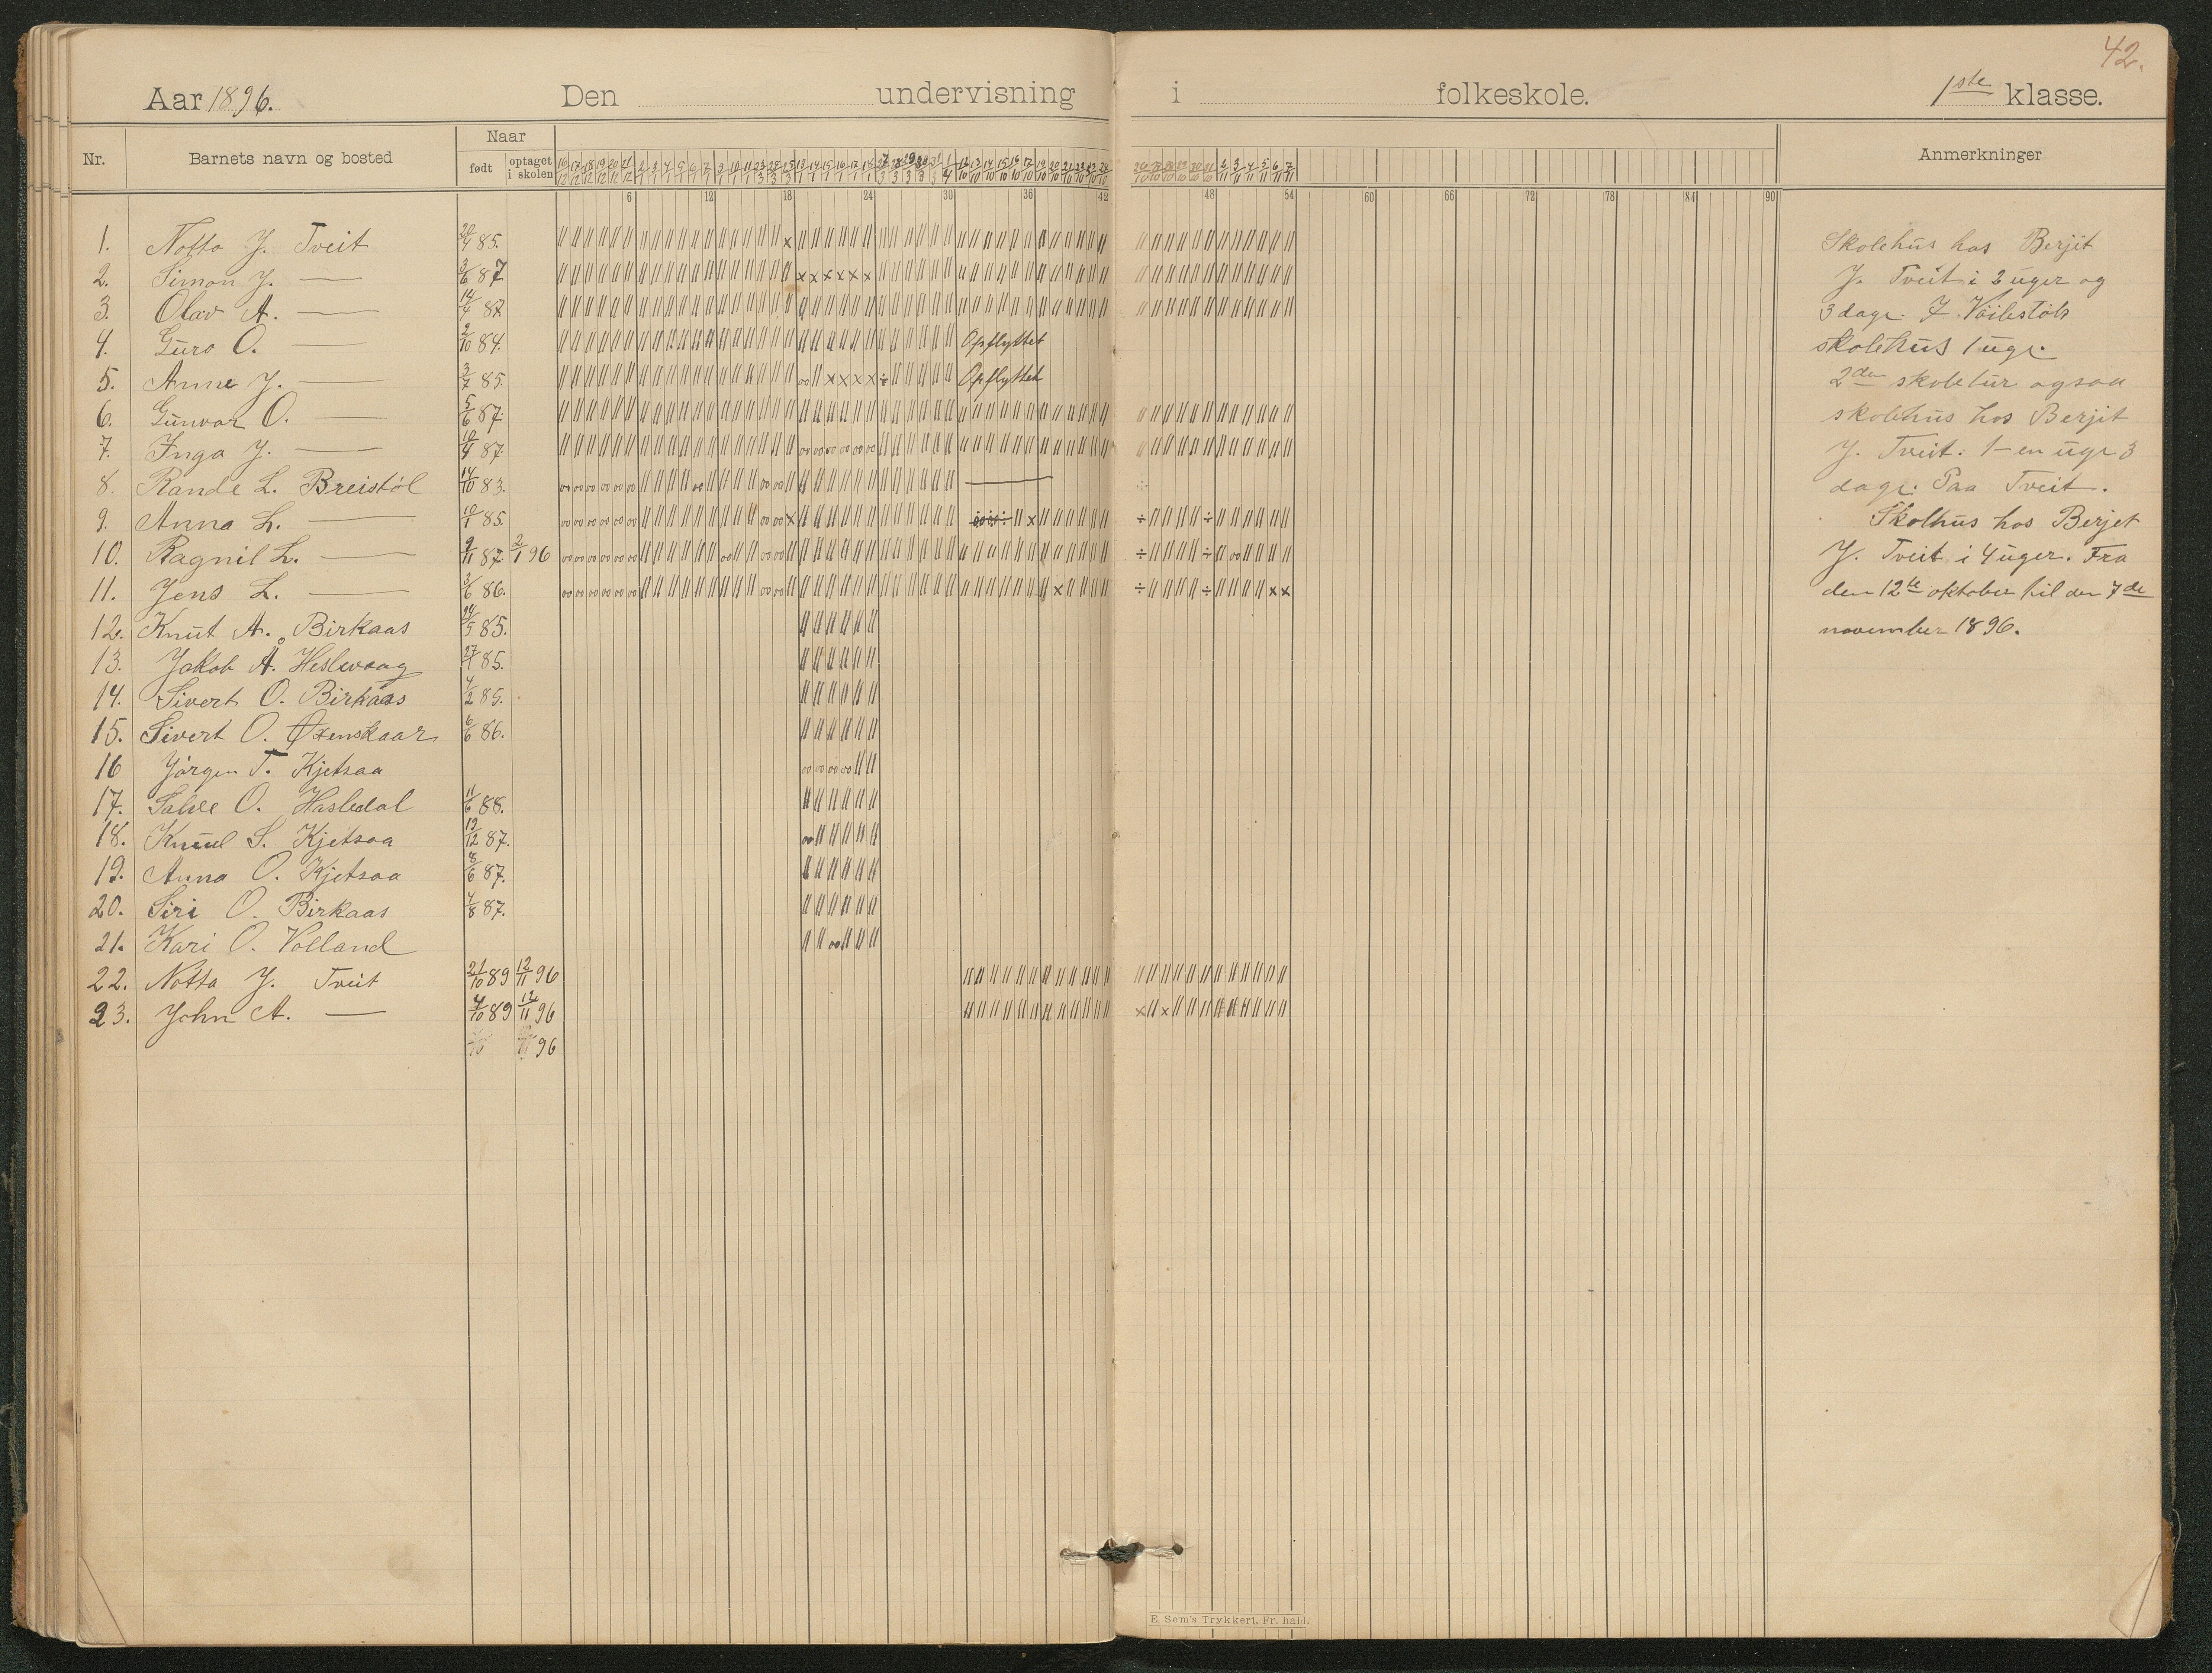 42.
Aar 1896. Den undervisning i folkeskole. 1ste klasse.
Nr. Barnets navn og bosted Naar født optaget i skolen Anmerkninger
6 12 18 24 30 36 42 48 54 60 66 72 78 84 90
1. Notto J. Tveit 20/4 85.
2. Simon J. — 3/6 87
3. Olav A. — 14/4 87
4. Guro O. — 2/10 84. Opflyttet
5. Anne J. — 3/7 85. Opflyttet
6. Gunvor O. — 5/6 87.
7. Inga J. — 87
8. Rande L. Breistöl 14/10 83.
9. Anna L. — 10/1 85.
10. Ragnil L. — 9/11 87. 2/1 96
11. Jens L. — 3/6 86.
12. Knut A. Birkaas 24/5 85.
13. Jakob Å. Heslevaag 85.
14. Sivert O. Birkaas 4/2 85.
15. Sivert O. Øxenskaar 6/6 86.
16 Jörgen T. Kjetsaa
17. Salve O. Hasledal 11/6 88.
18. Knud S. Kjetsaa 19/12 87.
19. Anna O. Kjetsaa 8/6 87.
20. Siri O. Birkaas 4/8 87.
21. Kari O. Volland
22. Notto J. Tveit 21/10 89 12/11 96
23. John A. — 4/10 89 12/11 96
96
Skolehus hos Berjit
J. Tveit i 2 uger og
3 dage.
skolehus 1 uge.
2den skoletur ogsaa
skolehus hos Berjit
J. Tveit. 1-en uge 3
dage. Paa Tveit.
Skolhus hos Berjet
J. Tveit i 4 uger. Fra
den 12te oktober til den 7de
november 1896.
E. Sem's Trykkeri, Fr. hald.